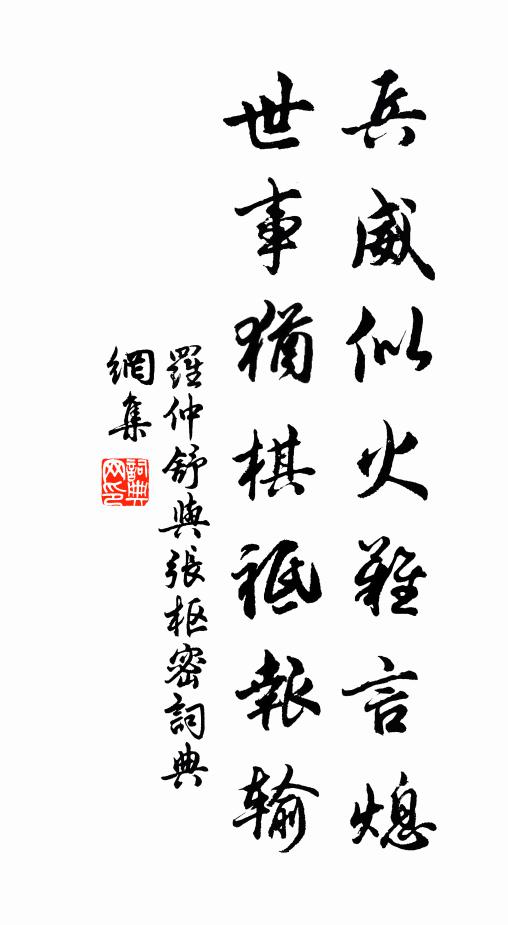 兵威似火難言熄
世事猶棋祗報輸
羅仲舒與張枢密詞典
網集
詞典
网印